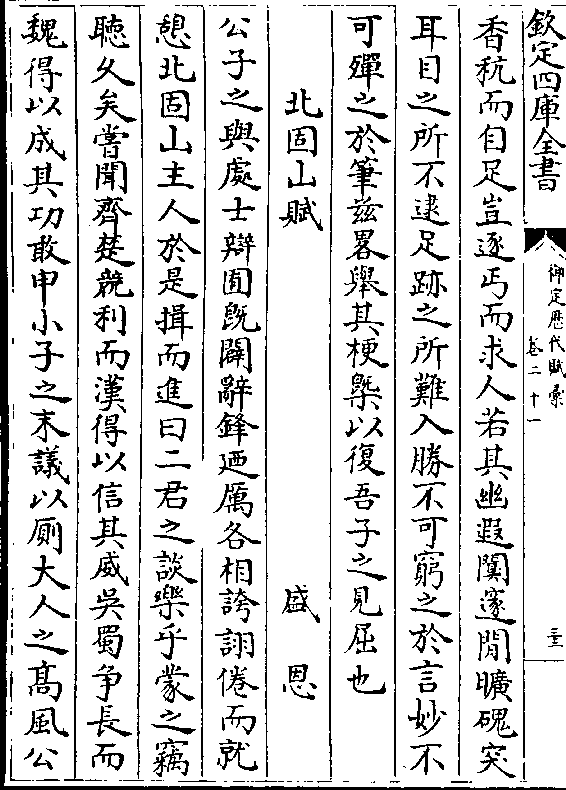 欽定四庫全書
御定歴代賦彙
卷二十一
三
香秔而自足豈逐丐而求人若其幽遐闃邃閒曠磈突
耳目之所不逮足跡之所難入勝不可窮之於言妙不
可殫之於筆兹畧舉其梗槩以復吾子之見屈也
北固山賦 盛恩
公子之與處士辯囿既闢辭鋒廼厲各相誇詡倦而就
憩北固山主人於是揖而進曰二君之談樂乎蒙之竊
聽久矣嘗聞齊楚競利而漢得以信其威吳蜀争長而
魏得以成其功敢申小子之末議以厠大人之髙風公